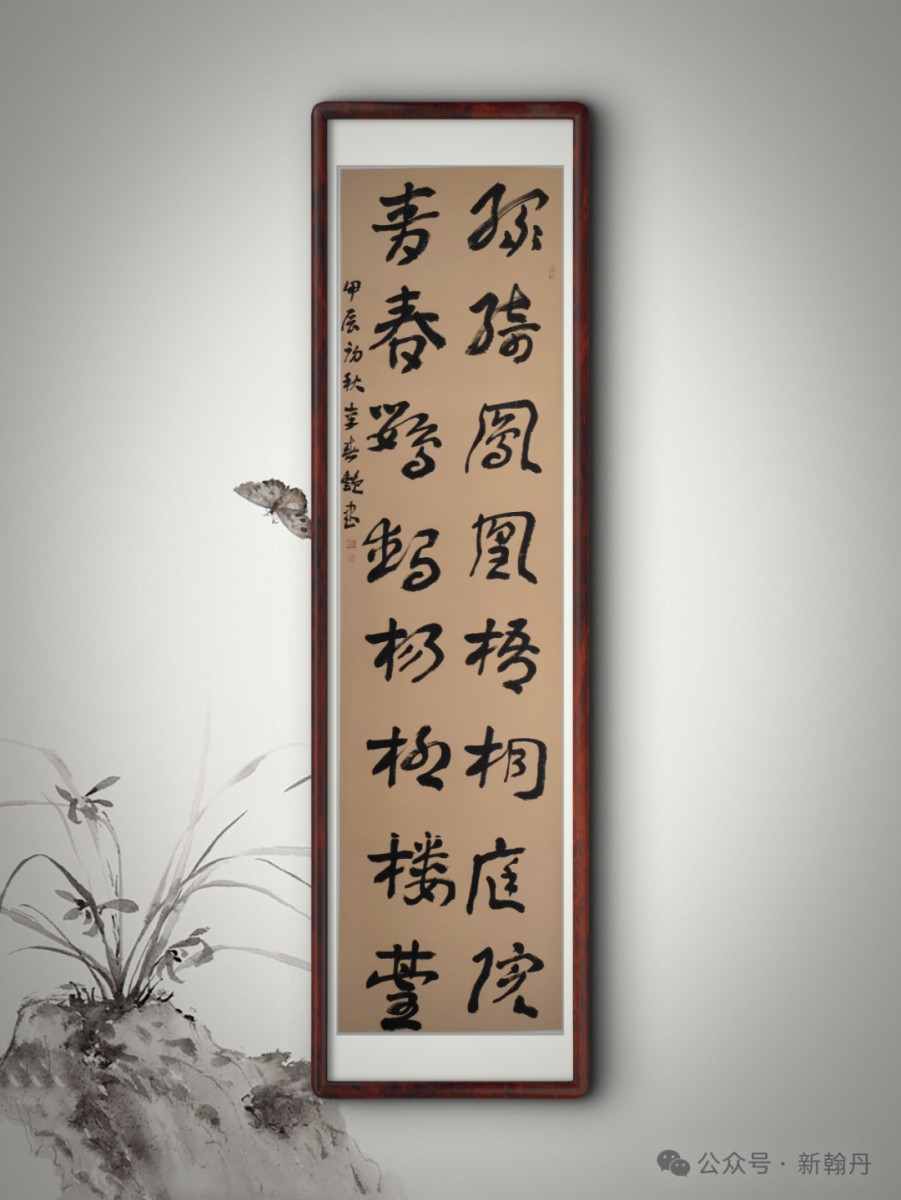 綠綺鳳凰梧桐庭院
青春鸚鵡楊柳樓臺
甲辰初秋李春艷書
公众号·新翰丹